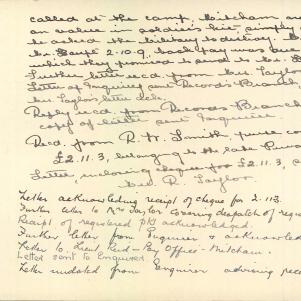 called at the camp, Mitcham and
an value in soldiers kit, simply
he asked the military to destroy.
Mr. Lloyd 2-10-9, back pay was due
which they promised to send to Mr.
Further letter recd. from Mrs. Taylor
Letter of Enquiry sent Records Branch,
Mrs. Taylor's letter
Reply recd. from Records Branch
copy of letter sent Enquirer.
Recd. from R. W. Smith,
£2.11.3, belonging to the late Private
Letter, enclosing cheque for £2.11.3,
Mrs. R. Taylor
Letter acknowledging receipt of cheque for 2.11.3.
Further letter to Mrs Taylor covering despatch of
Receipt of registered pkt acknowledged.
Further letter from Enquirer & acknowledged
Letter to Lieut. Reid - Pay Office - Mitcham.
Letter sent to Enquirer.
Letter undated from Enquirer advising